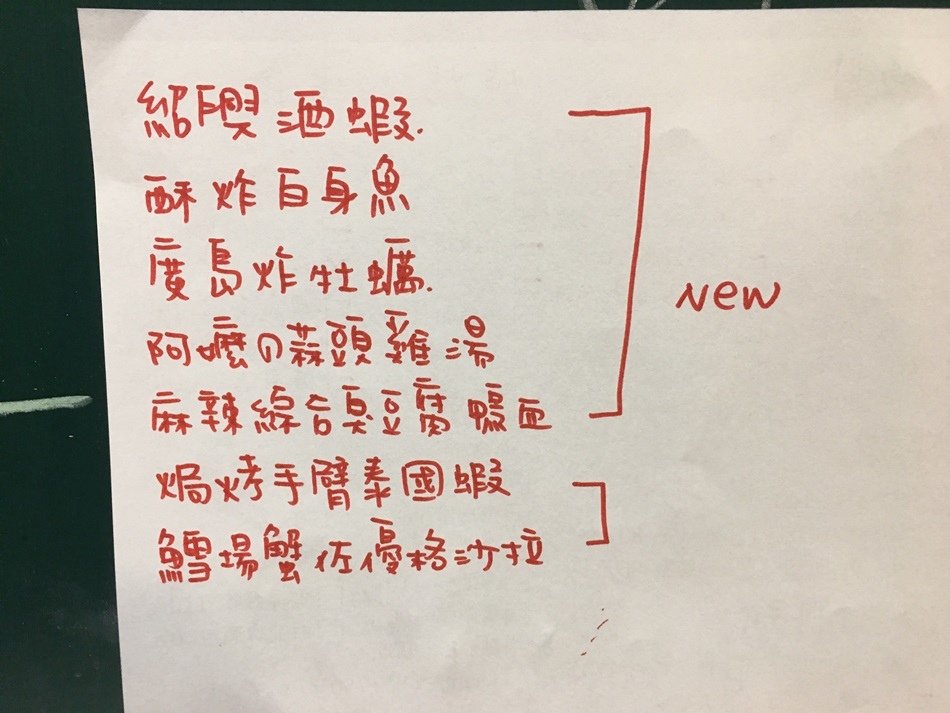 紹興酒蝦.
酥炸白身魚
廣島炸牡蠣.
阿嬤の蒜頭雞湯
麻辣綜合臭豆腐鴨血
焗烤手臂泰國蝦
鱈場蟹佐優格沙拉
New